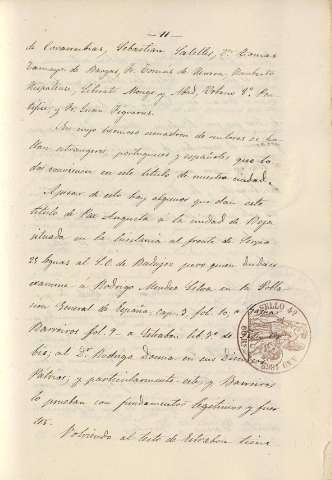 — 11 —
de Covarrubias, Sebastian Salelles, Dr. Tomas
Tamayo de Bargas, Fr. Tomás de Herrera, Umberto
Hispalense, Liberato Monge y Abad, Urbano 2º Pon-
tifice, y Fr. Juan Figueras.
En cuyo honroso de autores se ha-
llan estrangeros, portugueses y españoles, que to-
dos convienen en este titulo de nuestra ciudad.
Apesar de esto hay algunos que dan este
titulo de Pax Augusta a la ciudad de Beja
situada en la Lusitania al frente de Serpa
23 leguas al S.O. de Badajoz pero quien dudare
examine a Rodrigo Mendez Silva en la Pobla-
cion General de España, cap. 3, fol. 10, a
Barreiros fol. 9. a Estrabon lib. 3º de
bis; al Dr. Rodrigo Dosma en sus
Patrios; y particularmente este y Barreiros
lo prueban con fundamentos legitimos y fuer-
tes.
Volviendo al testo de Estrabon tiene
SELLO 4º